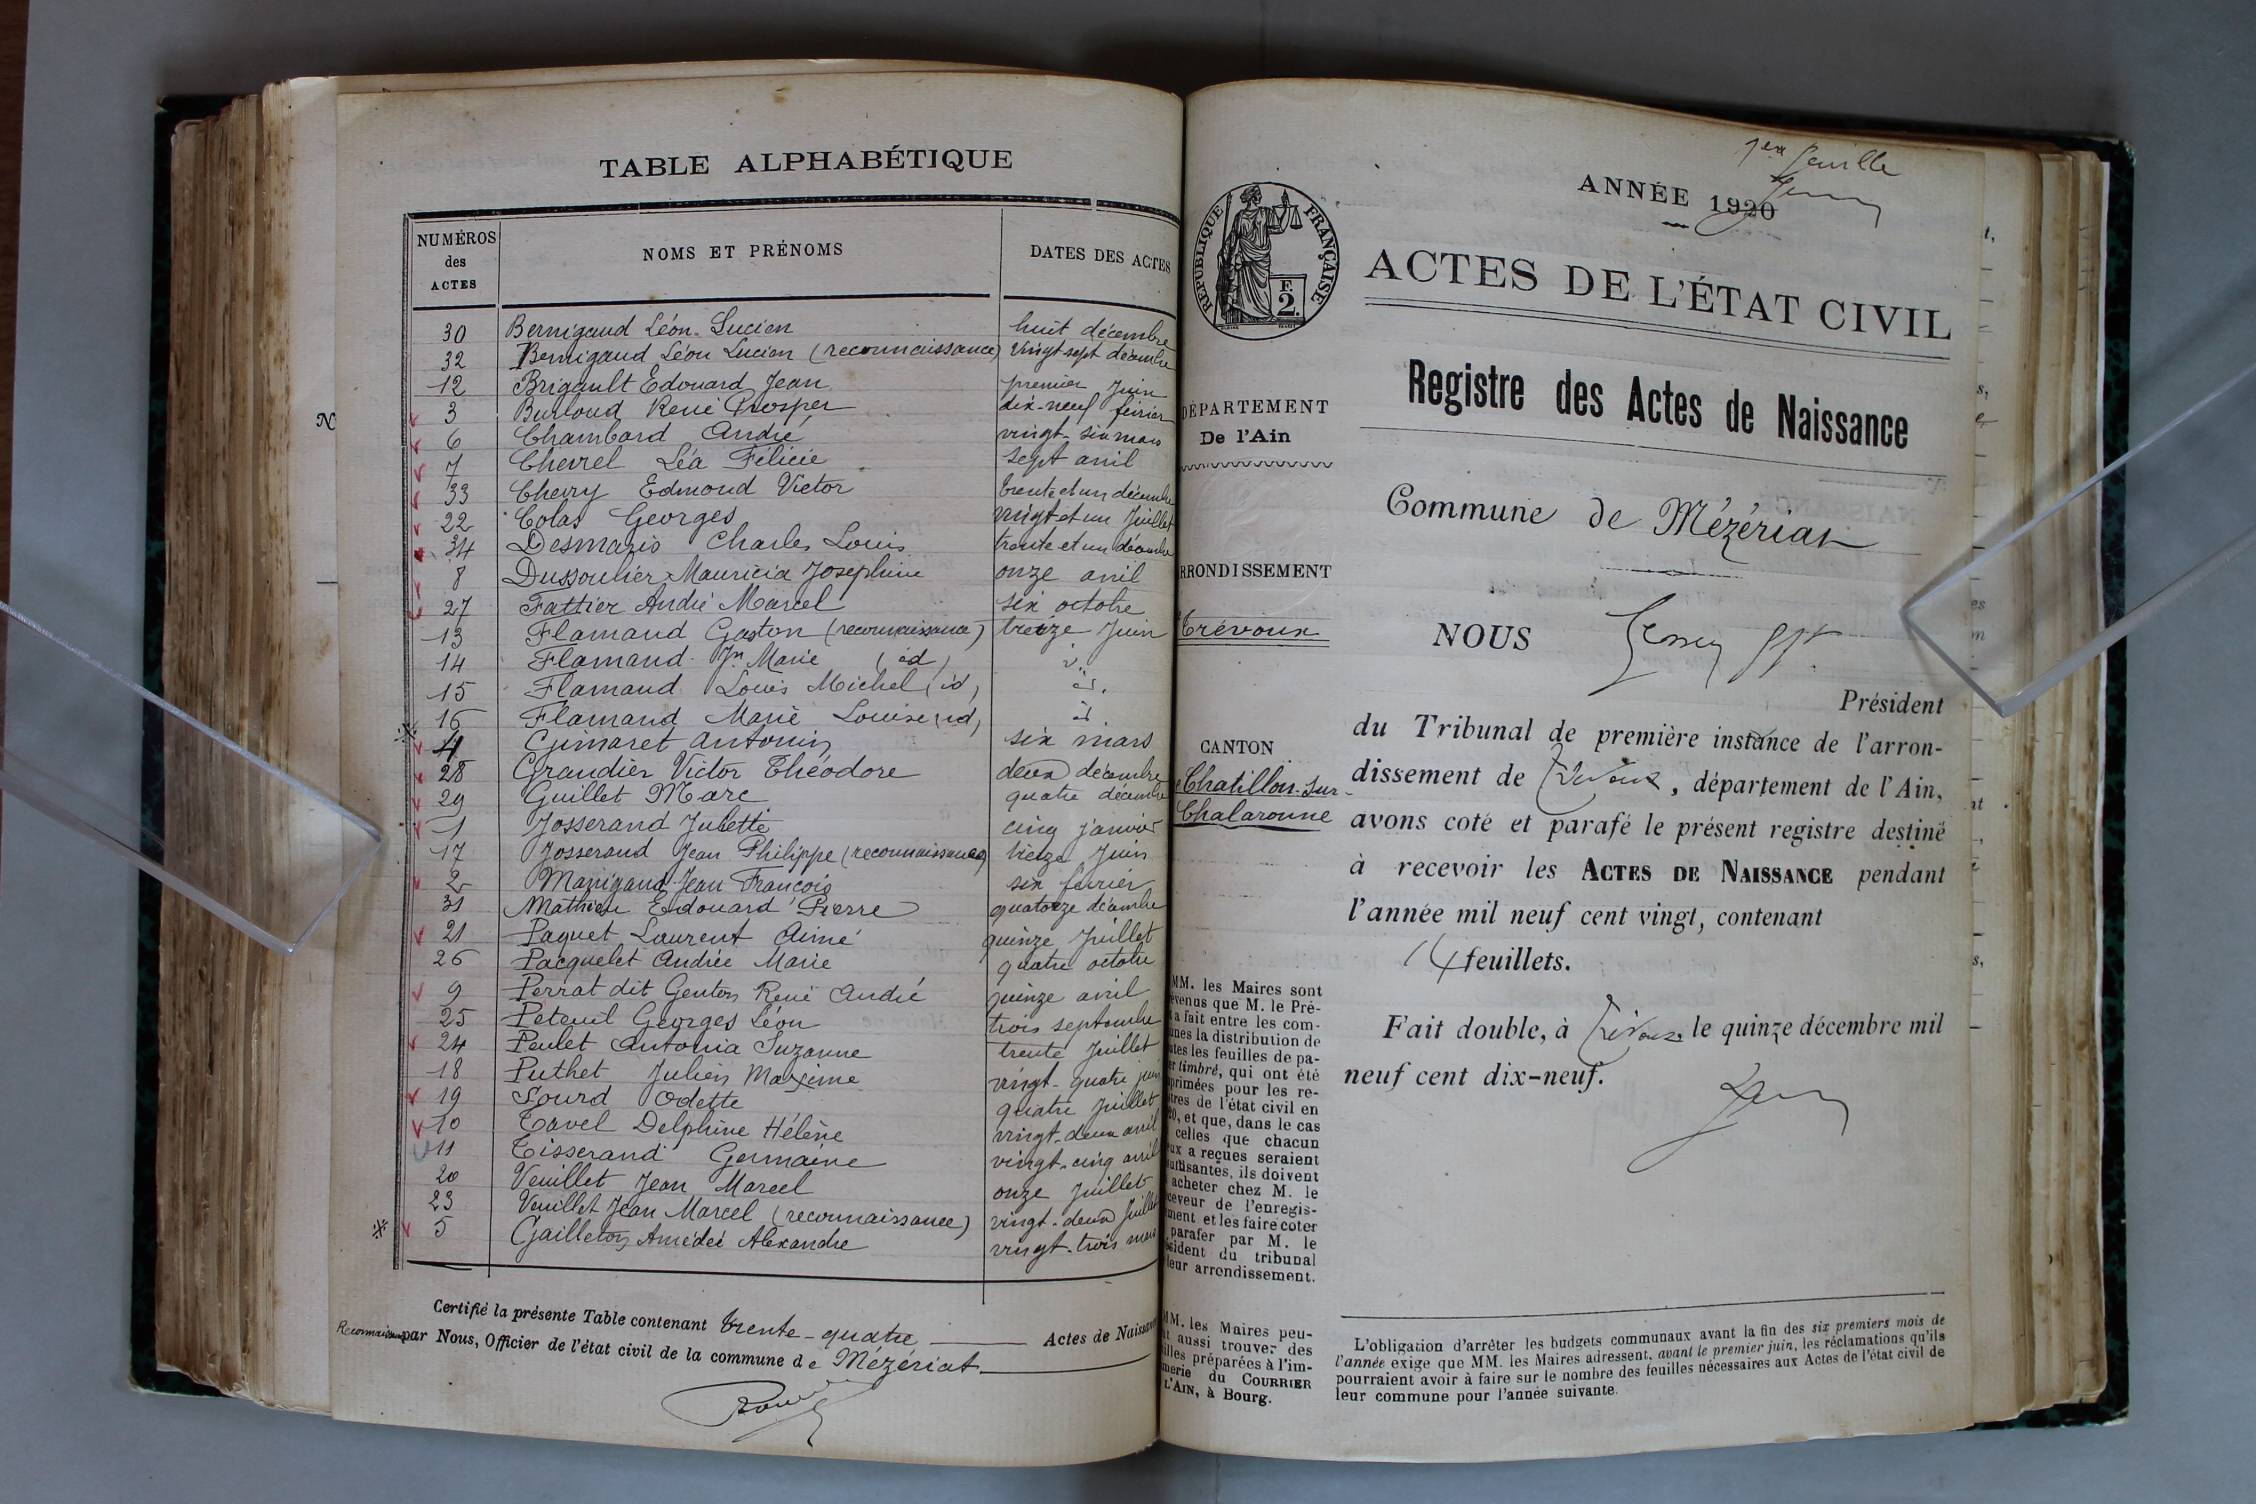 TABLE ALPHABÉTIQUE
NUMÉROS des ACTES
NOMS ET PRÉNOMS
DATES DES ACTES
30 Bernigaud Léon Lucien huit décembre
32 Bernigaud Léon Lucien (reconnaissance) Vingt sept décembre
12 Brigault Edouard Jean premier Juin
3 Burloud René Prosper dix-neuf février
6 Chambard André vingt-six mars
7 Chevrel Léa Félicie sept avril
33 Chevry Edmond Victor trente et un décembre
22 Colas Georges vingt et un Juillet
34 Desmaris Charles Louis trente et un décembre
8 Dussoulier Mauricia Joséphine onze avril
27 Fattier André Marcel six octobre
13 Flamand Gaston (reconnaissance) treize Juin
14 Flamand Jn Marie (id)
15 Flamand Louis Michel (id) id.
16 Flamand Marie Louise (id) id
4 Gimaret Antonin six mars
28 Grandier Victor Théodore deux décembre
29 Guillet Marc quatre décembre
1 Josserand Juliette cinq janvier
17 Josserand Jean Philippe (reconnaissance) treize Juin
2 Manigand Jean François six février
31 Mathieu Edouard Pierre quatorze décembre
21 Paquet Laurent Aimé quinze Juillet
26 Pacquelet Andrée Marie quatre octobre
9 Perrat dit Genton René André quinze avril
25 Peteuil Georges Léon trois septembre
24 Peulet Antonia Suzanne trente Juillet
18 Puthet Julien Maxime vingt-quatre juin
19 Sourd Odette quatre Juillet
10 Tavel Delphine Hélène vingt-deux avril
11 Tisserand Germaine vingt-cinq avril
20 Veuillet Jean Marcel onze Juillet
23 Veuillet Jean Marcel (reconnaissance) vingt-deux Juillet
5 Gailleton Amédée Alexandre vingt-trois mars
Certifié la présente Table contenant trente-quatre Actes de Naissance
par Nous, Officier de l'état civil de la commune de Mézériat
1er feuille
ANNÉE 1920
RÉPUBLIQUE FRANÇAISE
F.
2.
ACTES DE L'ÉTAT CIVIL
Registre des Actes de Naissance
DÉPARTEMENT
De l'Ain
Commune de Mézériat
ARRONDISSEMENT
Trévoux
CANTON
Chatillon-sur-
Chalaronne
NOUS
Président
du Tribunal de première instance de l'arron-
dissement de Trévoux, département de l'Ain,
avons coté et parafé le présent registre destiné
à recevoir les ACTES DE NAISSANCE pendant
l'année mil neuf cent vingt, contenant
14 feuillets.
Fait double, à Trévoux, le quinze décembre mil
neuf cent dix-neuf.
MM. les Maires sont
évenus que M. le Pré-
a fait entre les com-
unes la distribution de
utes les feuilles de pa-
er timbré, qui ont été
primées pour les re-
tres de l'état civil en
20, et que, dans le cas
celles que chacun
eux a reçues seraient
uffisantes, ils doivent
acheter chez M. le
ceveur de l'enregis-
ment et les faire coter
parafer par M. le
ésident du tribunal
leur arrondissement.
MM. les Maires peu-
nt aussi trouver des
illes préparées à l'im-
merie du COURRIER
L'AIN, à Bourg.
L'obligation d'arrêter les budgets communaux avant la fin des six premiers mois de
l'année exige que MM. les Maires adressent, avant le premier juin, les réclamations qu'ils
pourraient avoir à faire sur le nombre des feuilles nécessaires aux Actes de l'état civil de
leur commune pour l'année suivante.